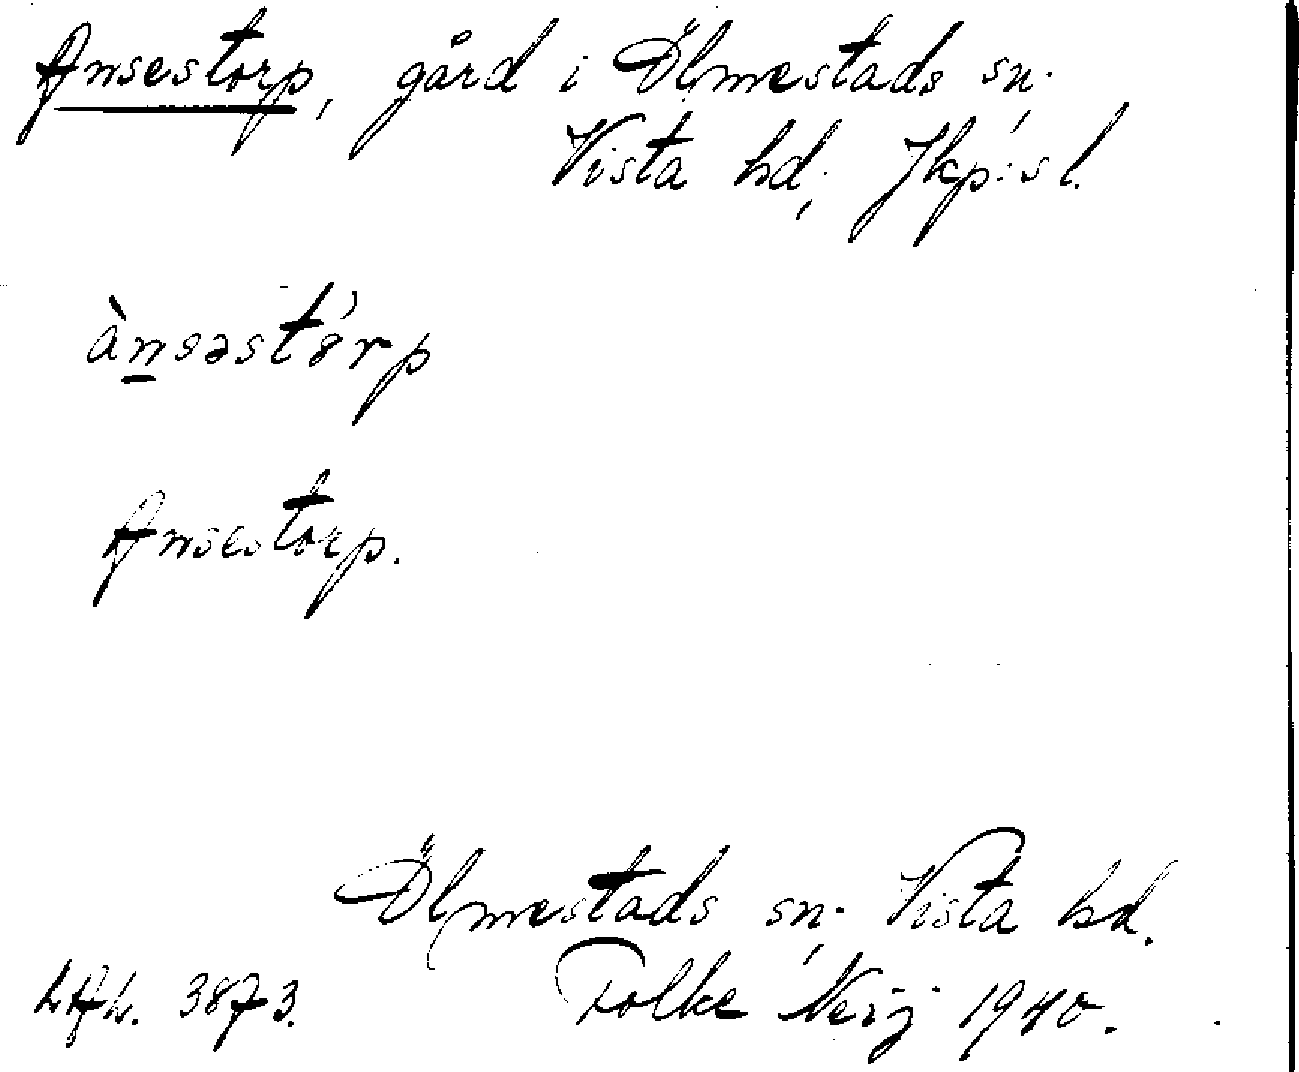 Ansestorp, gård i Ölmestads sn.,
Vista hd, Jkp:s l.
ànsəstórp
Ansestorp.
Ölmestads sn. Vista hd.
LAL. 3873. Folke Neij 1940.